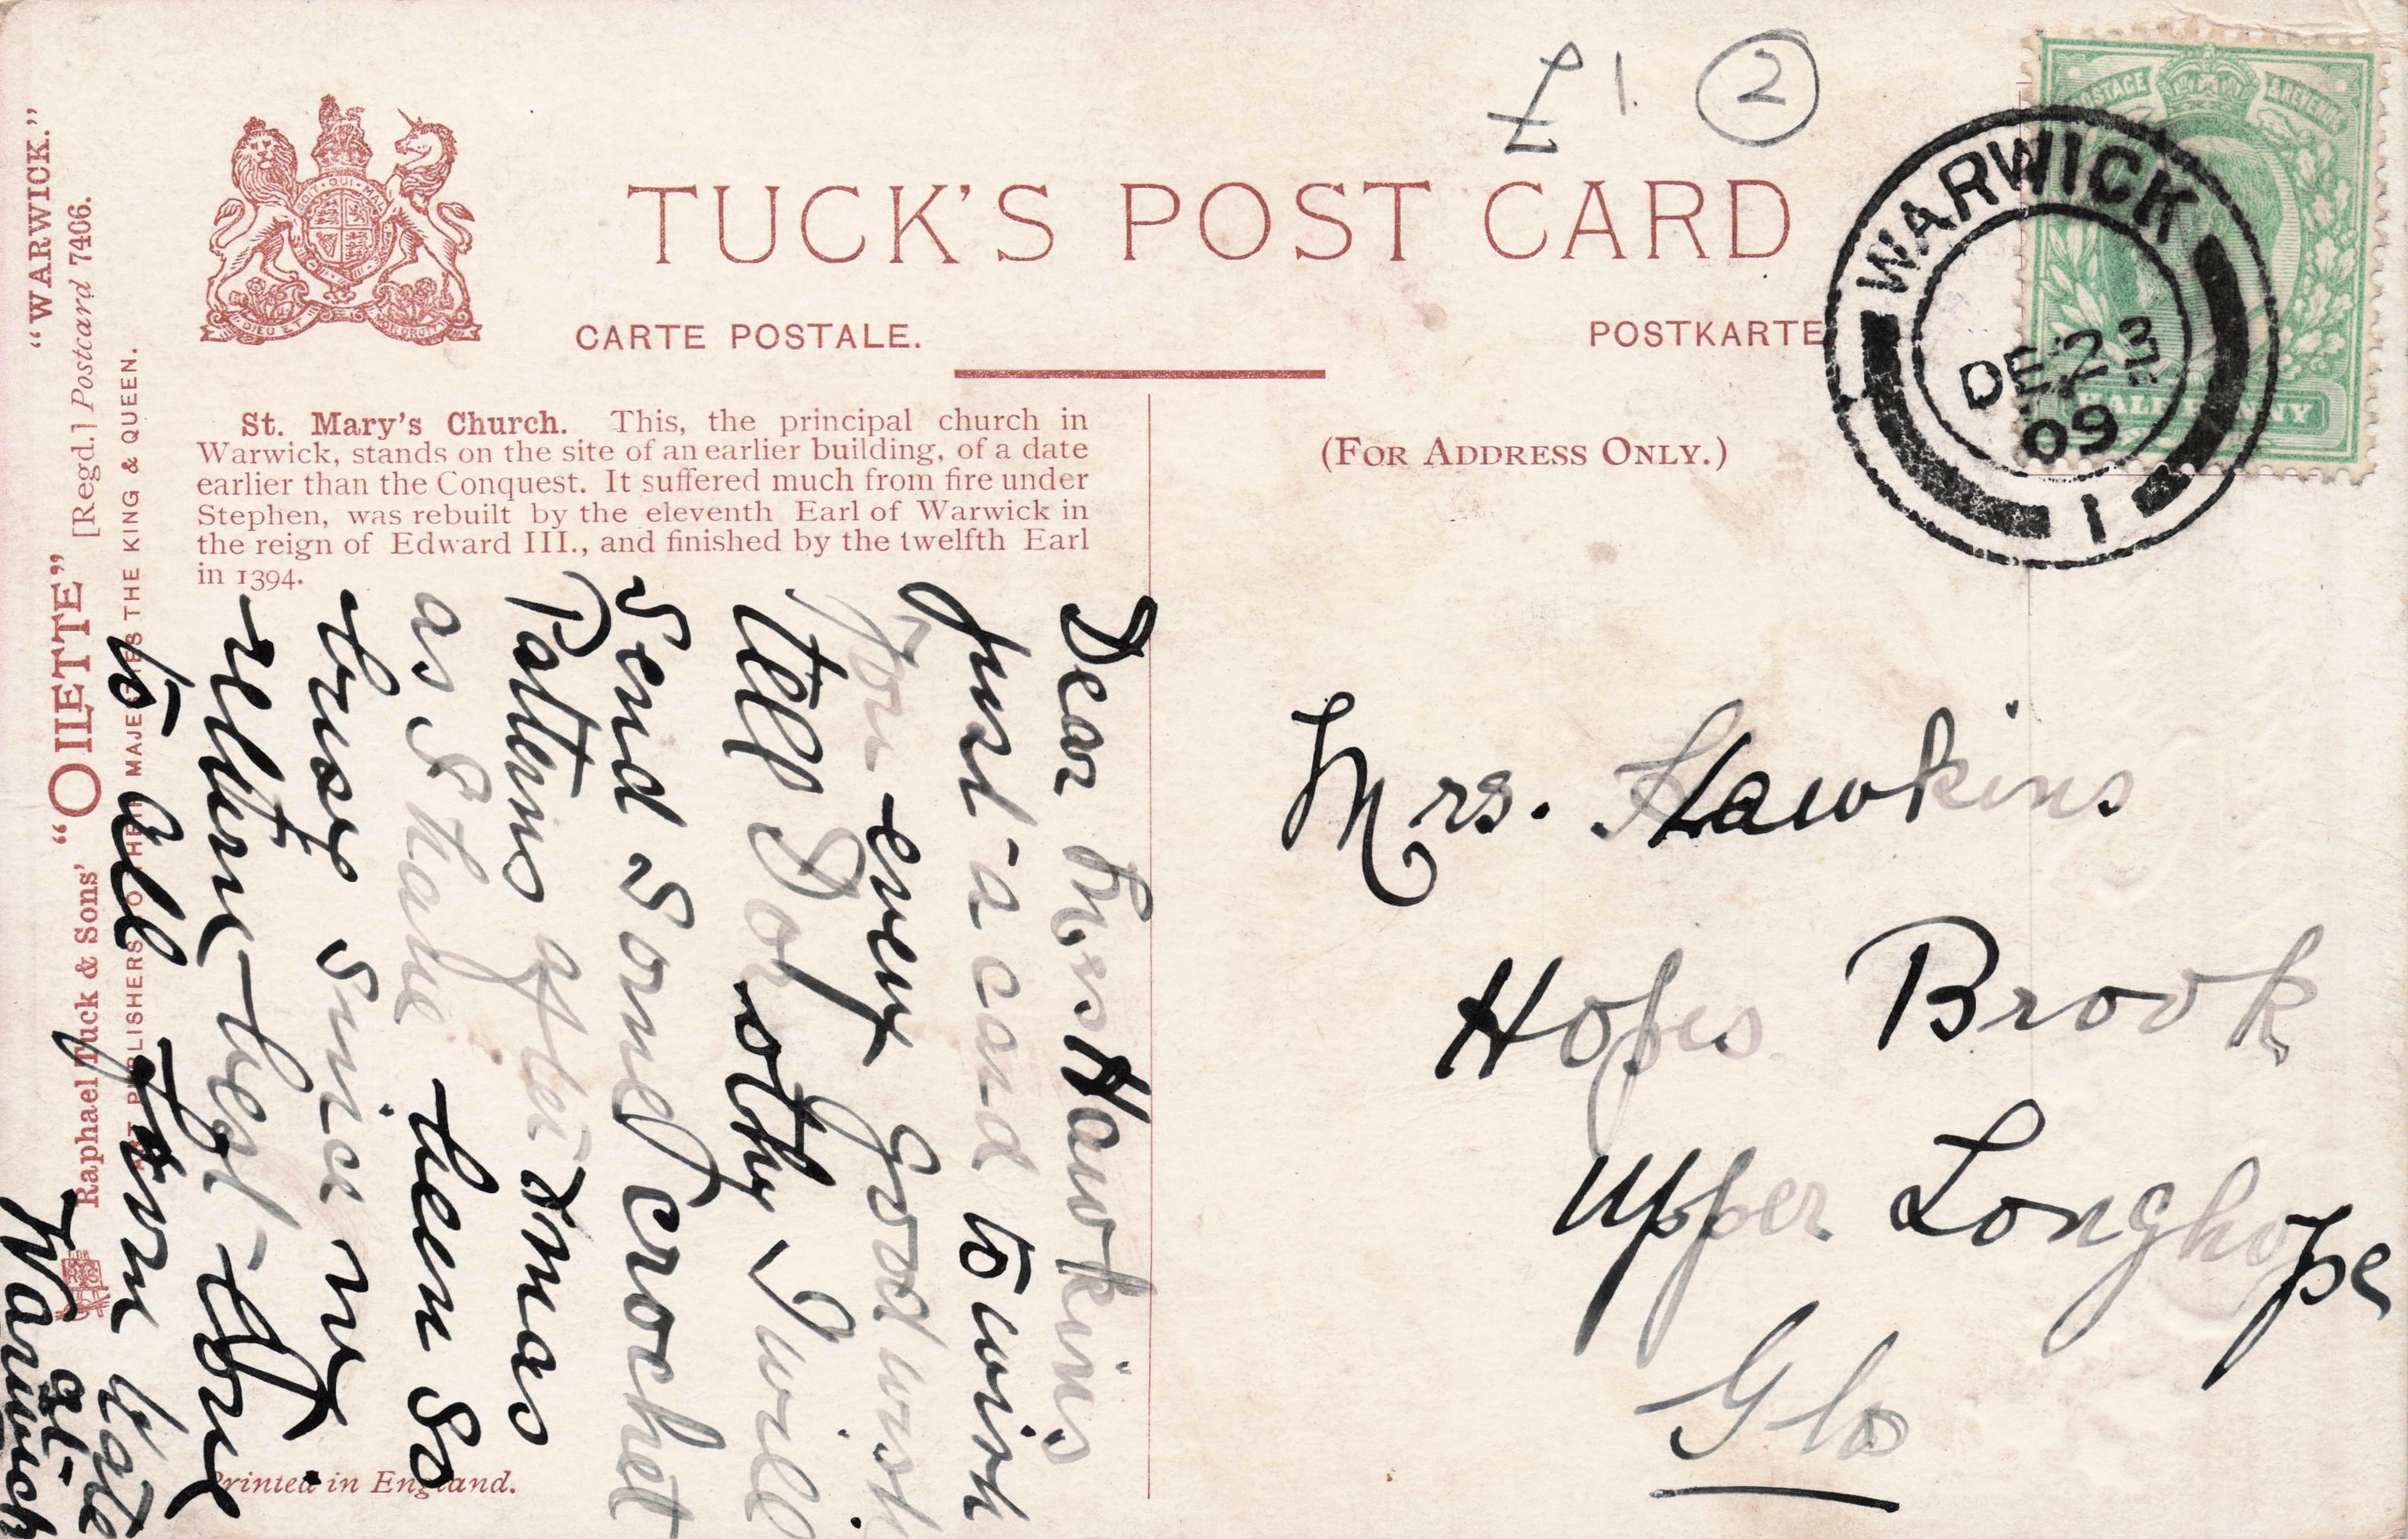 £1. 2
TUCK'S POST CARD
CARTE POSTALE.
POSTKARTE
POSTAGE & REVENUE
HALFPENNY
WARWICK
DE 23
09
1
(FOR ADDRESS ONLY.)
St. Mary's Church. This, the principal church in
Warwick, stands on the site of an earlier building, of a date
earlier than the Conquest. It suffered much from fire under
Stephen, was rebuilt by the eleventh Earl of Warwick in
the reign of Edward III., and finished by the twelfth Earl
in 1394.
"WARWICK."
"OILETTE" [Regd.] Postcard 7406.
Raphael Tuck & Sons'
ART PUBLISHERS TO THEIR MAJESTIES THE KING & QUEEN.
DIEU ET MON DROIT
Dear Mrs Hawkins
Just a card to wish
you every Good wish
tell Dorothy I will
Send Some Crochet
Patterns after Xmas
as I have been so
busy since my
return - best - love
to all from Kate
at
Warwick
Mrs. Hawkins
Hopes Brook
Upper Longhope
Glo
Printed in England.